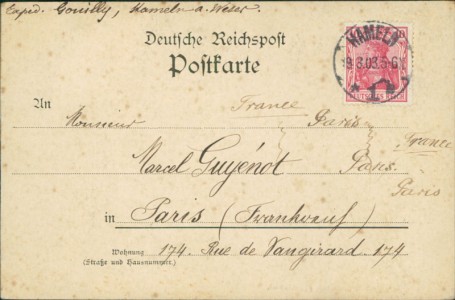 Exped. Gouilly, Hameln a. Weser.
Deutsche Reichspost
Postkarte
HAMELN
9.3.03.5-6N
* 1 *
An
France
Monsieur
Paris
France
Marcel Guyénot
Paris.
Paris
in Paris (Frankreich)
Wohnung
(Straße und Hausnummer.)
174. Rue de Vaugirard. 174